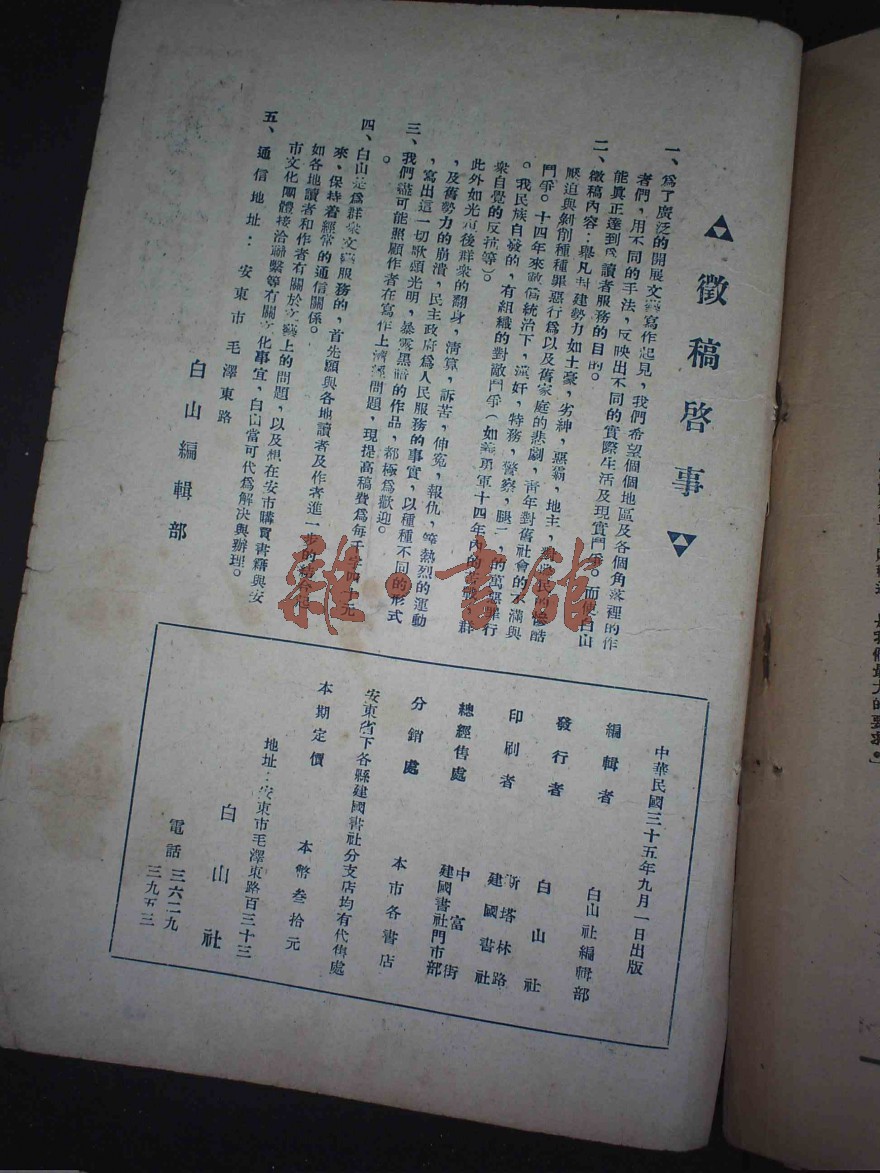 徵稿啓事
一、爲了廣泛的開展文藝寫作起見，我們希望個個地區及各個角落裡的作
者們，用不同的手法，反映出不同的實際生活及現實鬥爭。而使白山
能眞正達到爲讀者服務的目的。
二、徵稿內容：舉凡封建勢力如土豪，劣神，惡霸，地主，對農民的慘酷
壓迫與剝削種種罪惡行爲以及舊家庭的悲劇，靑年對舊社會的不滿與
鬥爭。十四年來敵僞統治下，漢奸，特務，警察，腿子，的萬惡罪行
。我民族自發的，有組織的對敵鬥爭（如義勇軍十四年內的 群
衆自覺的反抗等）。
此外如光復後群衆的翻身，淸算，訴苦，伸寃，報仇，等熱烈的運動
，及舊勢力的崩潰，民主政府爲人民服務的事實，以種種不同的形式
，寫出這一切歌頌光明，暴露黑暗的作品，都極爲歡迎。
三、我們儘可能照顧作者在寫作上 問題，現提高稿費爲每千字 元
。
四、白山是爲群衆文藝服務的，首先願與各地讀者及作者進一步的結合起
來，保持着經常的通信關係。
如各地讀者和作者有關於文藝上的問題，以及想在安市購買書籍與安
市文化團體接洽聯繫等有關文化事宜，白山當可代爲解決與辦理。
五、通信地址：安東市毛澤東路
白山編輯部
中華民國三十五年九月一日出版
編輯者 白山社編輯部
發行者 白山社
印刷者 斯塔林路
建國書社
總經售處 中富街
建國書社門市部
分銷處 本市各書店
安東省下各縣建國書社分支店均有代售處
本期定價 本幣叁拾元
地址：安東市毛澤東路百三十三
白山社
電話 三六二九
三九五三
是我們最大的要求。
雜·書館